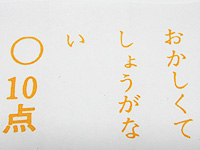 おかしくて
しょうがな
い
○10点